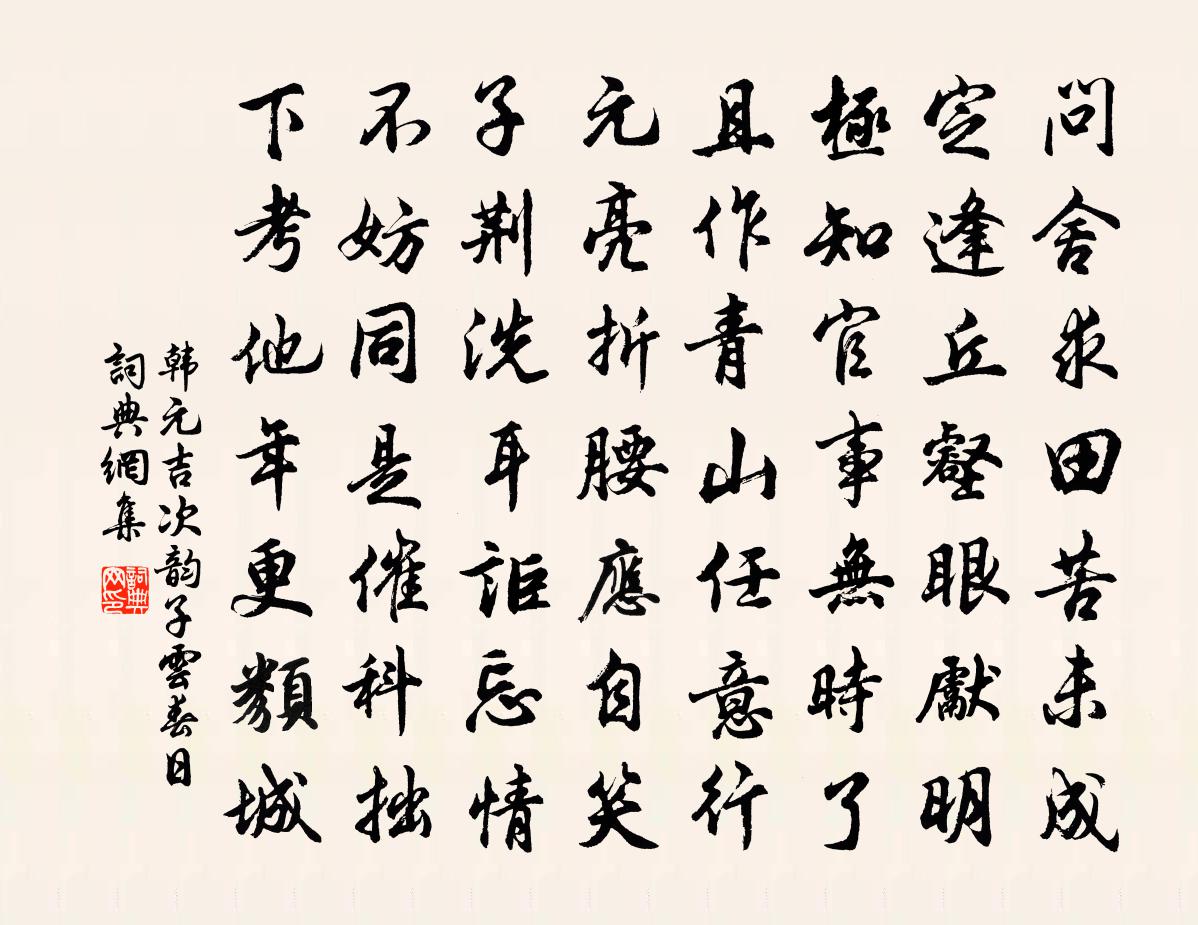 問舍求田苦未成
定逢丘壑眼獻明
極知官事無時了
且作青山任意行
元亮折腰應自笑
子荆洗耳詎忘情
不妨同是催科拙
下考他年更類城
韩元吉次韵子雲春日
詞典網集
詞典
网印